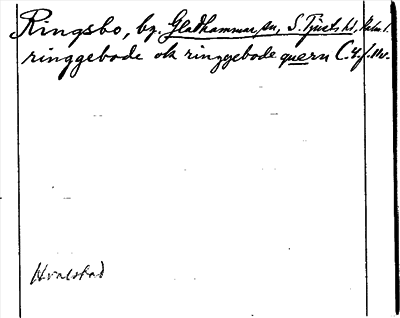 Ringsbo, by. Gladhammar sn, S. Tjusts hd, Kalm. l.
ringgebode ok ringgebode quern C. 4. f.
Hvalstad